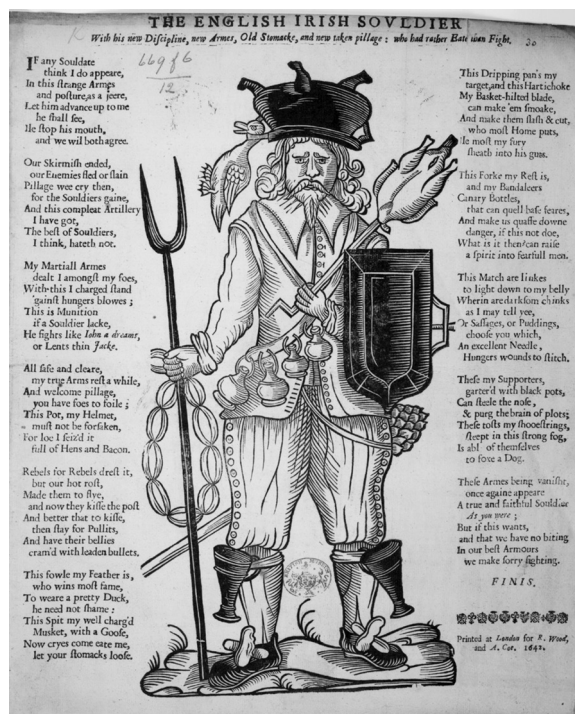 THE ENGLISH IRISH SOVLDIER
With his new Discipline, new Armes, Old Stomacke, and new taken pillage: who had rather Eate than Fight.
669 f 6
12
30
IF any Souldate
think I do appeare,
In this strange Armes
and posture, as a jeere,
Let him advance up to me
he shall see,
Ile stop his mouth,
and we wil both agree.
Our Skirmish ended,
our Enemies fled or slain
Pillage wee cry then,
for the Souldiers gaine,
And this compleat Artillery
I have got,
The best of Souldiers,
I think, hateth not.
My Martiall Armes
dealt I amongst my foes,
With this I charged stand
'gainst hungers blowes;
This is Munition
if a Souldier lacke,
He fights like Iohn a dreams,
or Lents thin Jacke.
All safe and cleare,
my true Arms rest a while,
And welcome pillage,
you have foes to foile;
This Pot, my Helmet,
must not be forsaken,
For loe I seiz'd it
full of Hens and Bacon.
Rebels for Rebels drest it,
but our hot rost,
Made them to flye,
and now they kisse the post
And better that to kisse,
then stay for Pullits,
And have their bellies
cram'd with leaden bullets.
This fowle my Feather is,
who wins most fame,
To weare a pretty Duck,
he need not shame:
This Spit my well charg'd
Musket, with a Goose,
Now cryes come eate me,
let your stomacks loose.
This Dripping pan's my
target, and this Hartichoke
My Basket-hilted blade,
can make 'em smoake,
And make them slash & cut,
who most Home puts,
Ile most my fury
sheath into his guts.
This Forke my Rest is,
and my Bandaleers
Canary Bottles,
that can quell base feares,
And make us quaffe downe
danger, if this not doe,
What is it then? can raise
a spirit into fearfull men.
This Match are linkes
to light down to my belly
Wherin are darksom chinks
as I may tell yee,
Or Sassages, or Puddings,
choose you which,
An excellent Needle,
Hungers wounds to stitch.
These my Supporters,
garter'd with black pots,
Can steele the nose,
& purg the brain of plots;
These tosts my shooestrings,
steept in this strong fog,
Is abl of themselves
to foxe a Dog.
These Armes being vanisht,
once againe appeare
A true and faithful Souldier
As you were;
But if this wants,
and that we have no biting
In our best Armours
we make sorry fighting.
FINIS.
Printed at London for R. Wood,
and A. Coe. 1642.